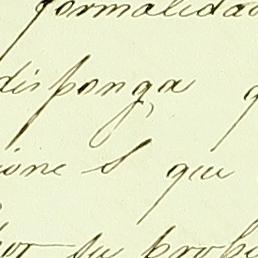 formalidad
disponga q
ione S que
por su probe